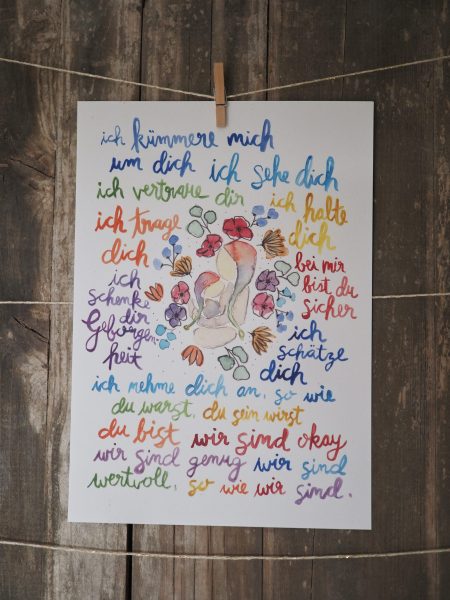 ich kümmere mich
um dich ich sehe dich
ich vertraue dir ich halte
dich
ich trage
dich
bei mir
bist du
sicher
ich
schenke
dir
Geborgen
heit
ich
schätze
dich
ich nehme dich an, so wie
du warst, du sein wirst
du bist wir sind okay
wir sind genug wir sind
wertvoll, so wie wir sind.